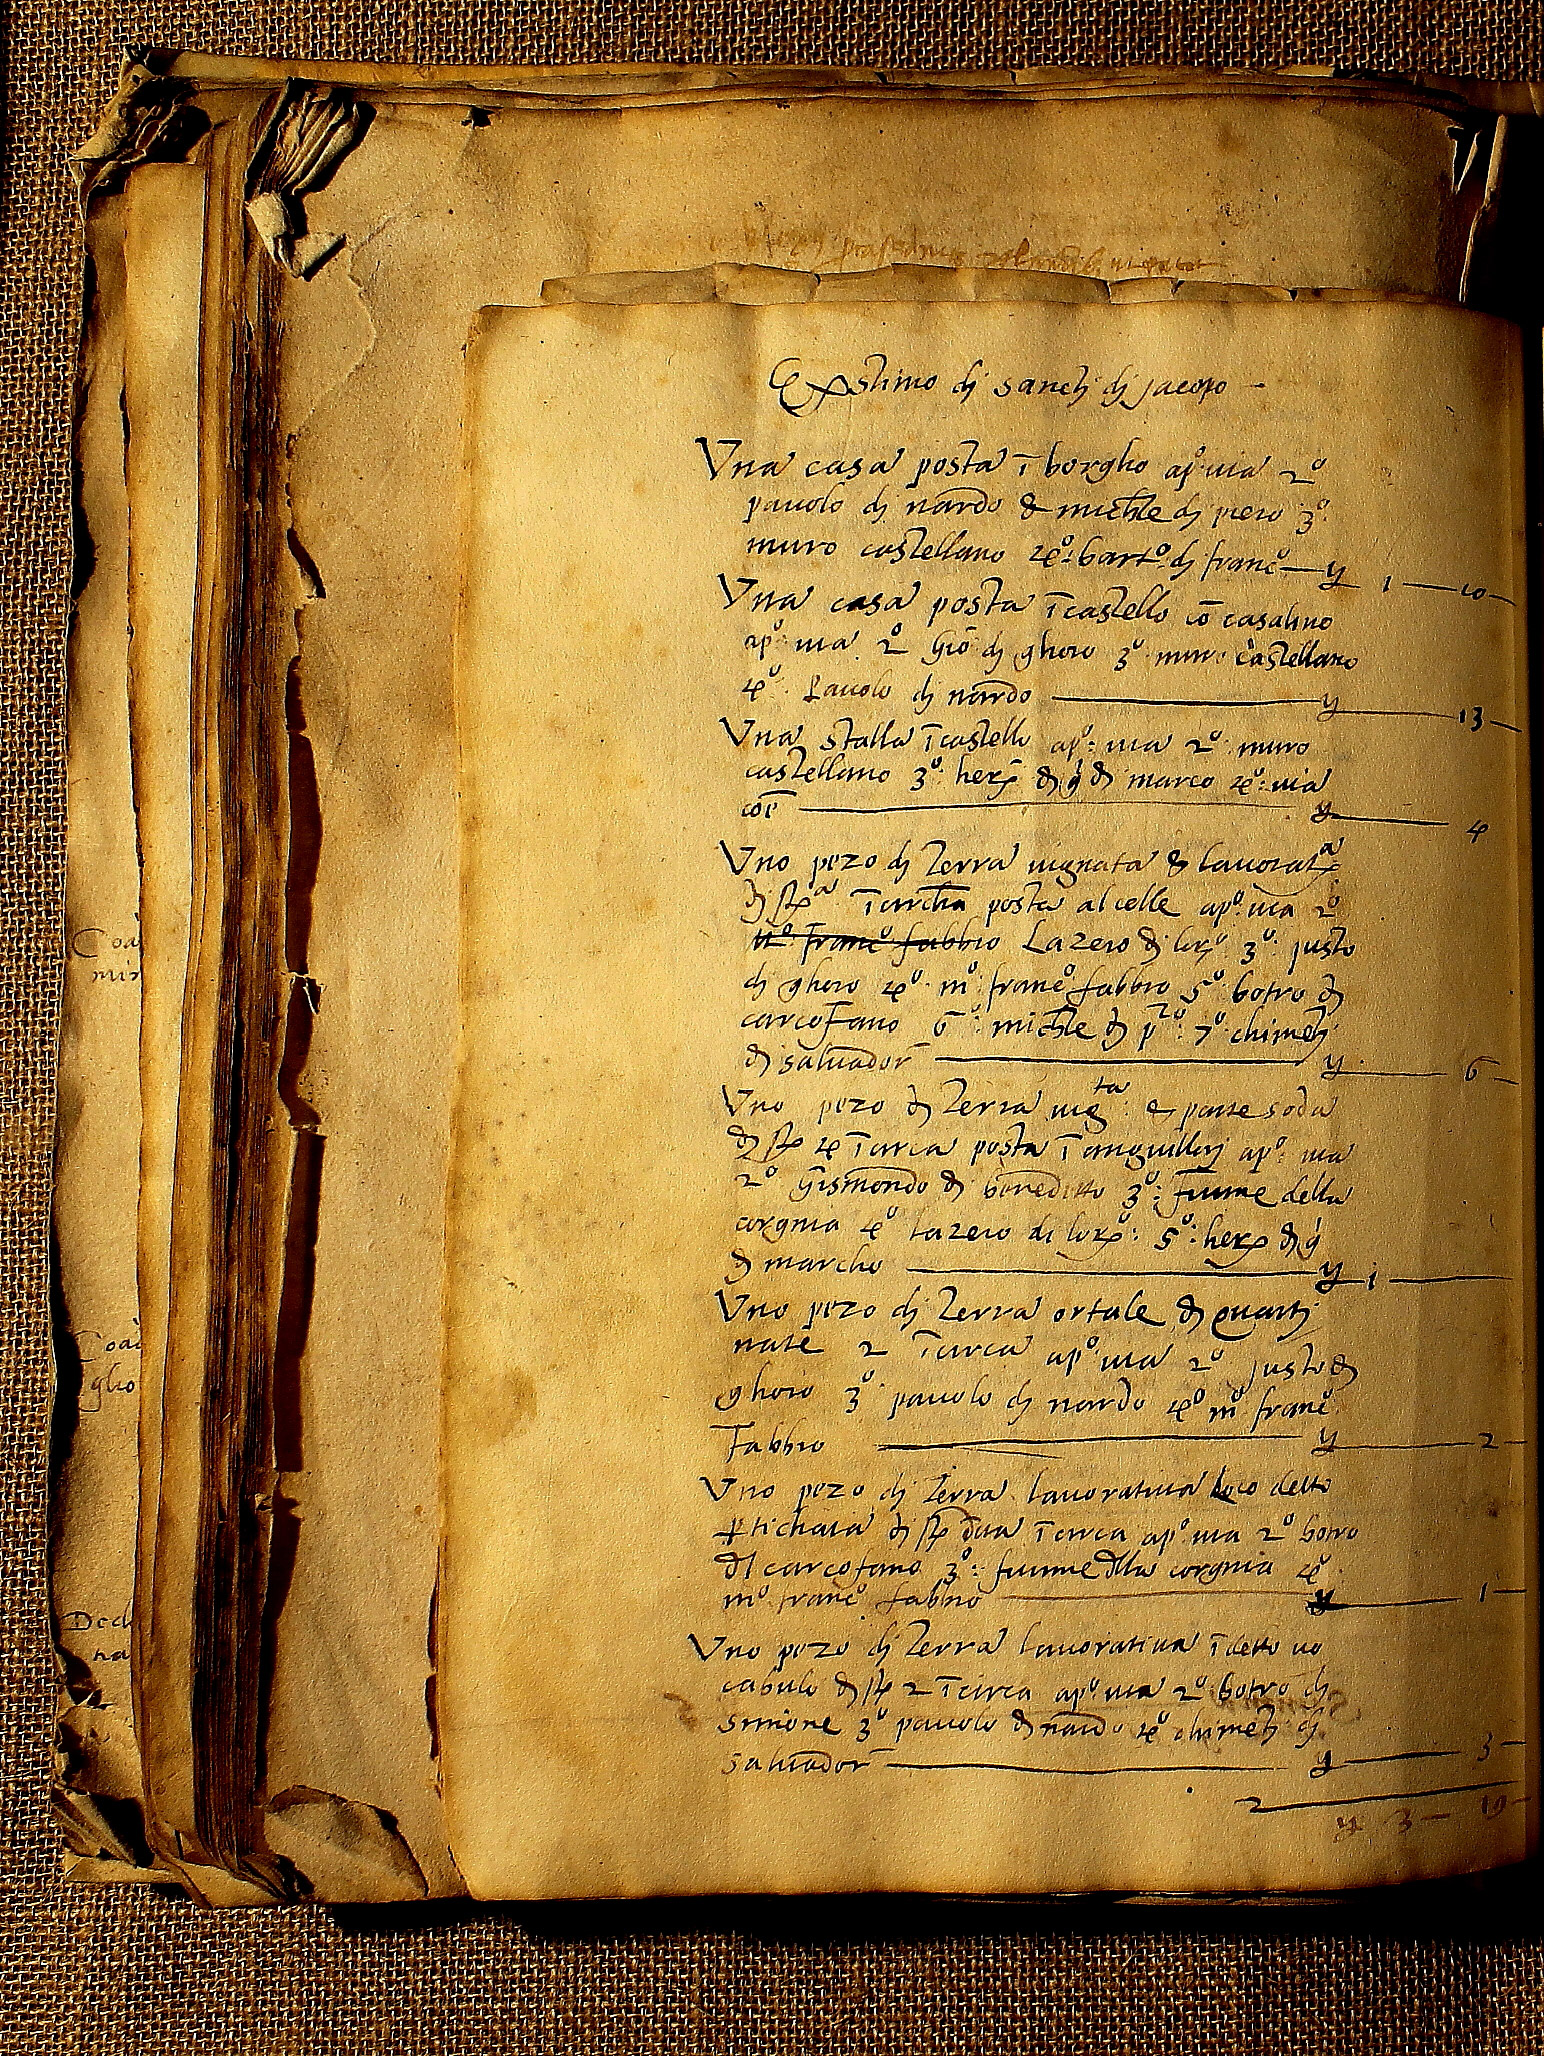 Exstimo di Sancti di Jacopo
Una casa posta ī borgho ap.º via 2º
pauolo di nardo & michele di piero 3º
muro castellano 4º: bart.º di franc.º — 1 — 10 —
Una casa posta ī castello cō casalino
ap.º uia 2º Giō di ghoro 3º muro castellano
4º. Pauolo di nardo — 13 —
Una stalla ī castello ap.º: uia 2º muro
castellano 3º: her. di g di marco 4º: uia
cōe — 4
Uno pezo di Terra uignata & lauorata
di st.ª ī circha posta al colle ap.º: uia 2º
m.º franc.º fabbro Lazero di lor.º 3º: justo
di ghoro 4º m.º franc.º fabbro 5º botro di
carcofano 6º: michele di p.º: 7º chimeti
di saluador — 6 —
Uno pezo di Terra uig.ta: e parte soda
di st. 4 ī circa posta ī anguillaj ap.º: uia
2º Gismondo di beneditto 3º: fiume della
corgnia 4º lazero di lor.º: 5º: her. di g
di marcho — 1 —
Uno pezo di Terra ortale di quarti
nate 2 ī circa ap.º uia 2º Justo di
ghoro 3º pauolo di nardo 4º m.º franc.º
Fabbro — 2 —
Uno pezo di Terra lauoratiua loco detto
ptichaia di st. ī circa ap.º uia 2º botro
del carcofano 3º: fiume della corgnia 4º
m.º franc.º fabbro — 1 —
Uno pezo di Terra lauoratiua ī detto uo
cabulo di st. 2 ī circa ap.º uia 2º botro di
simone 3º pauolo di nardo 4º chimeti di
saluador — 3 —
3 — 19 —
Coa
min
Coa
glio
Ded
na